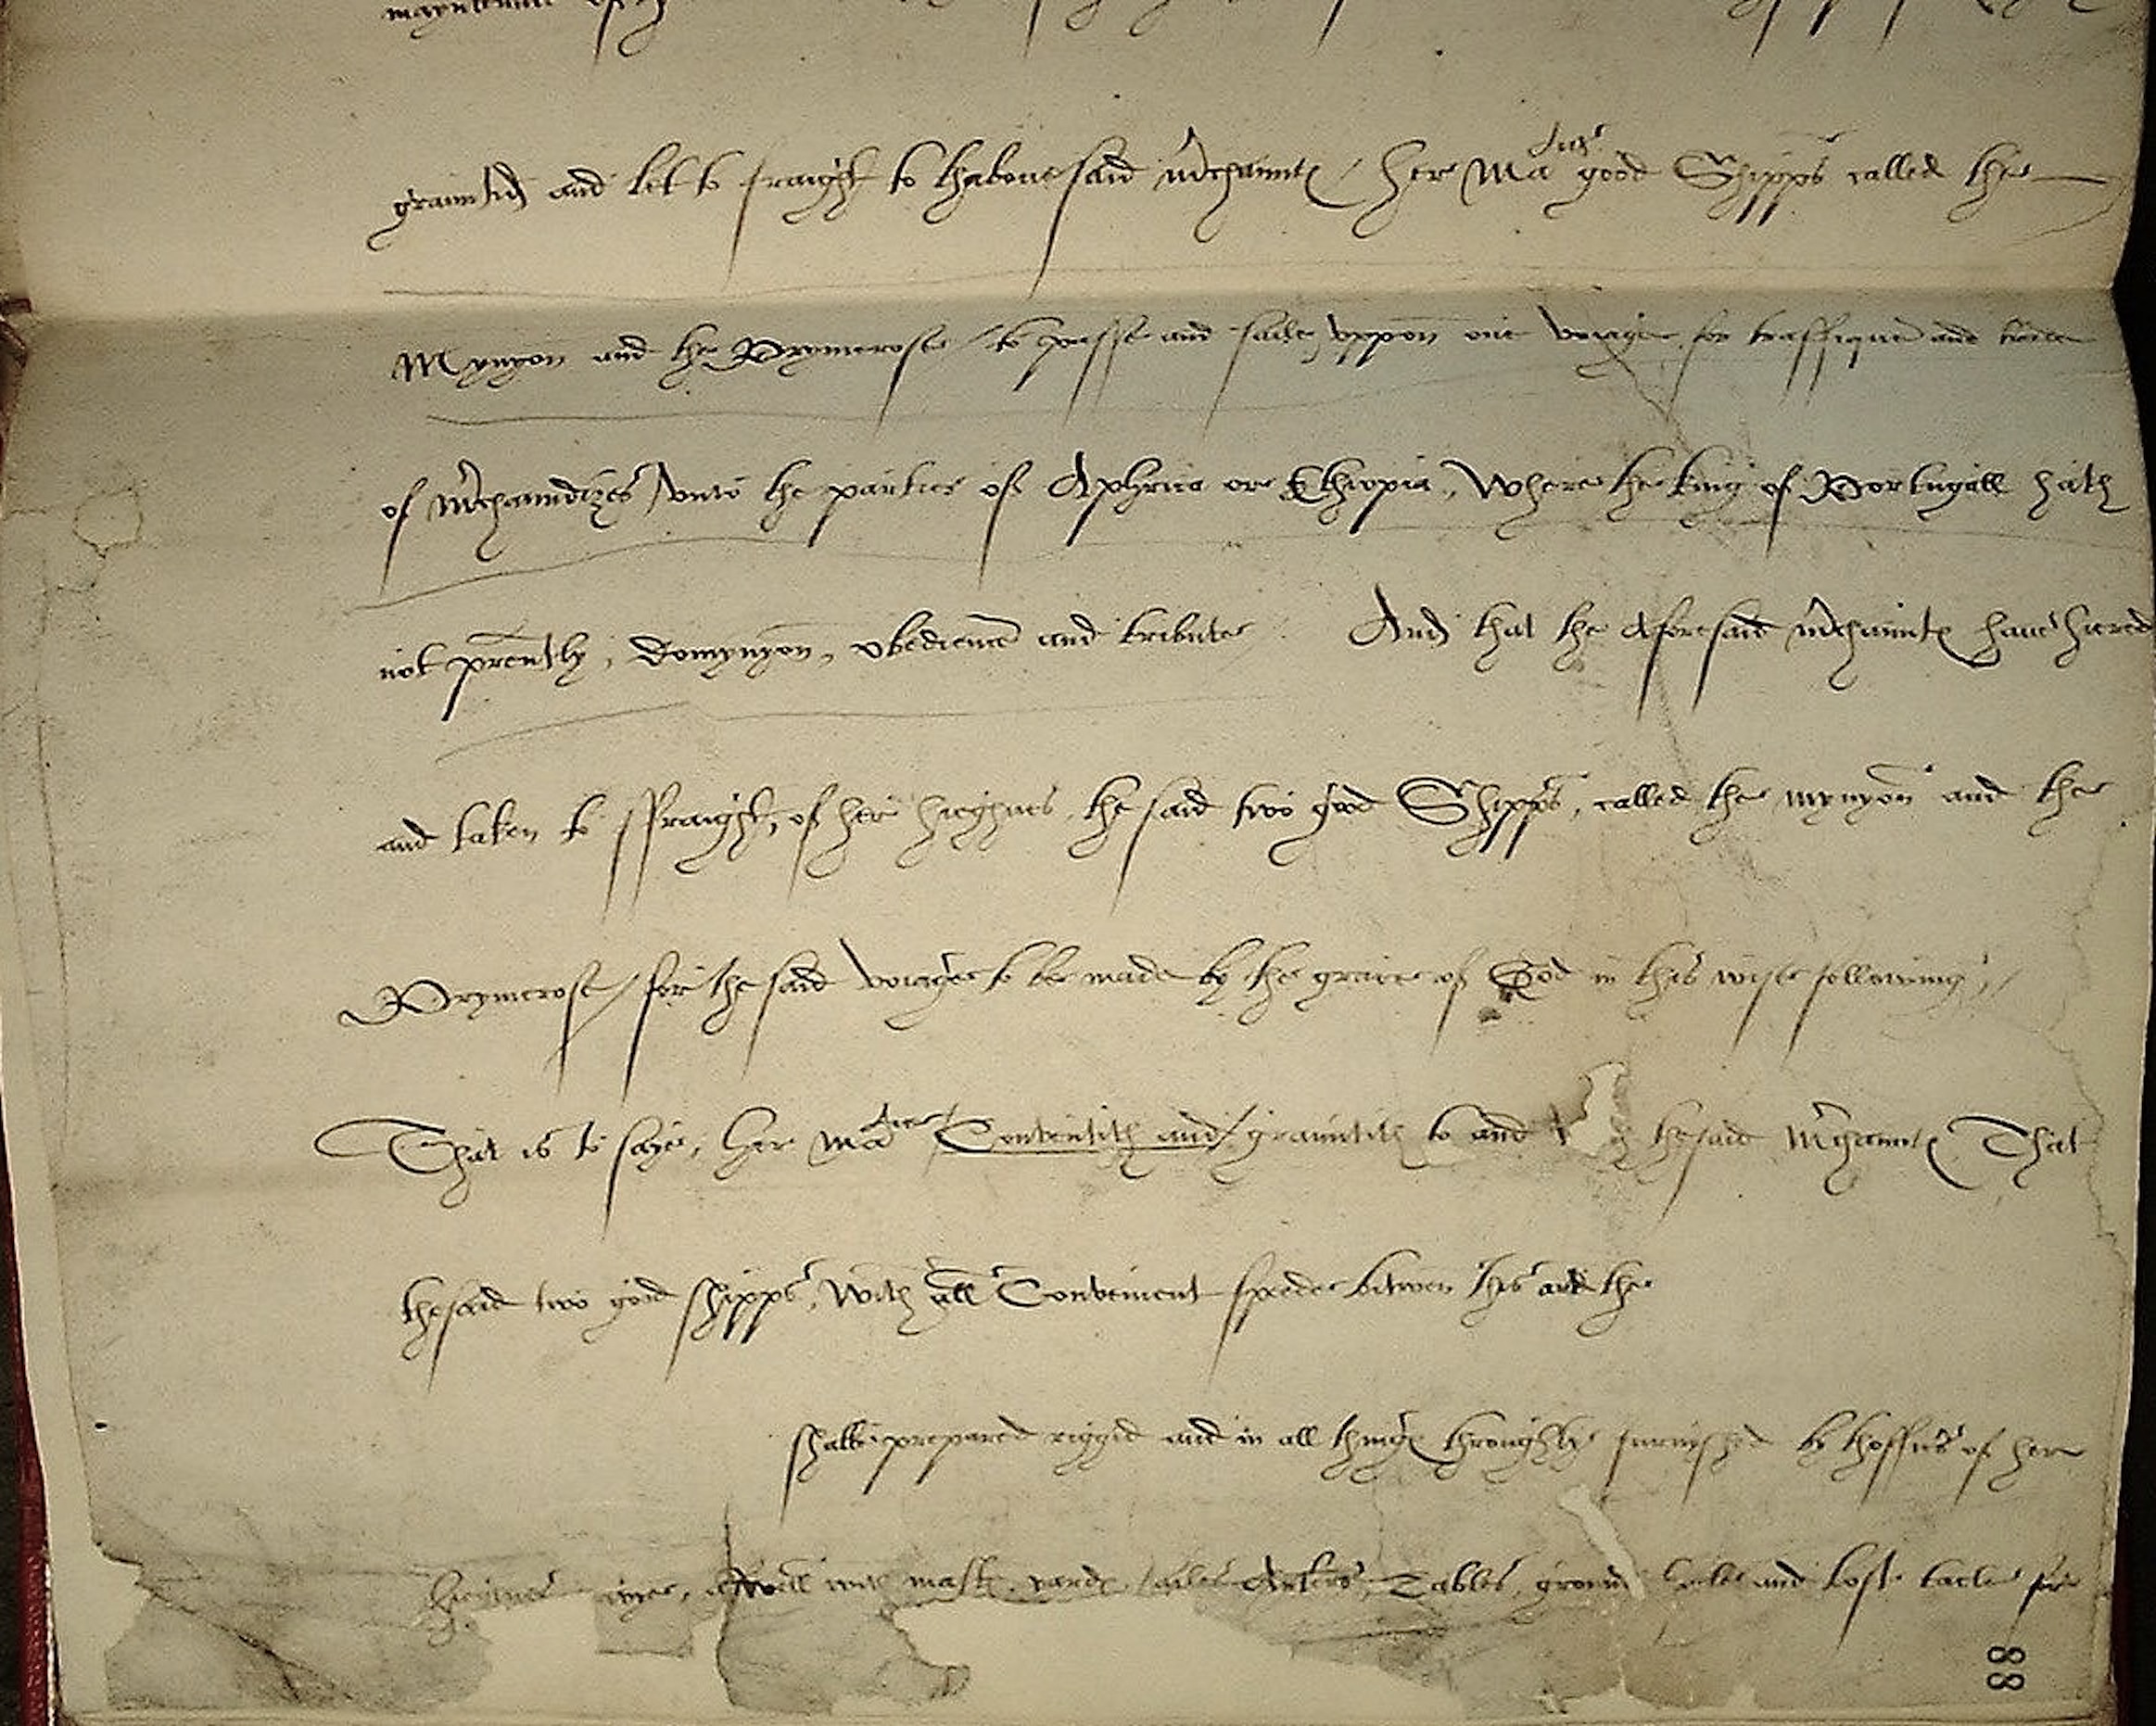 grauntid and let to fraight to thabouesaid mrchauntes / her Ma ties good Shipps called the
Mynyon and the Prymerose / to passe and saile vppon one voiage for traffique and trade
of mrchaundizes / vnto the parties of Aphrica or Ethiopia, Where the king of Portugall hath
not prently, Domynyon, obedience and tribute And that the Aforesaid mrchauntes haue hiered
and taken to ffraight, of her hieghnes, the said two good Shipps, called the mynyon and the
Prymerose / for the said voiage to be made by the grace of God in this wise following /
That is to saye, her Ma ties Contentith and / grauntith to and the said Mrchauntes That
the said two good shipps, With all Convenient spede bitwen this and the
shalbe prepared riggid and in all thinges throughly furnyshed by thofficers of her
aswell with mastes, yardes, sailes Ankers, Cables, ground and lose tacle for
88